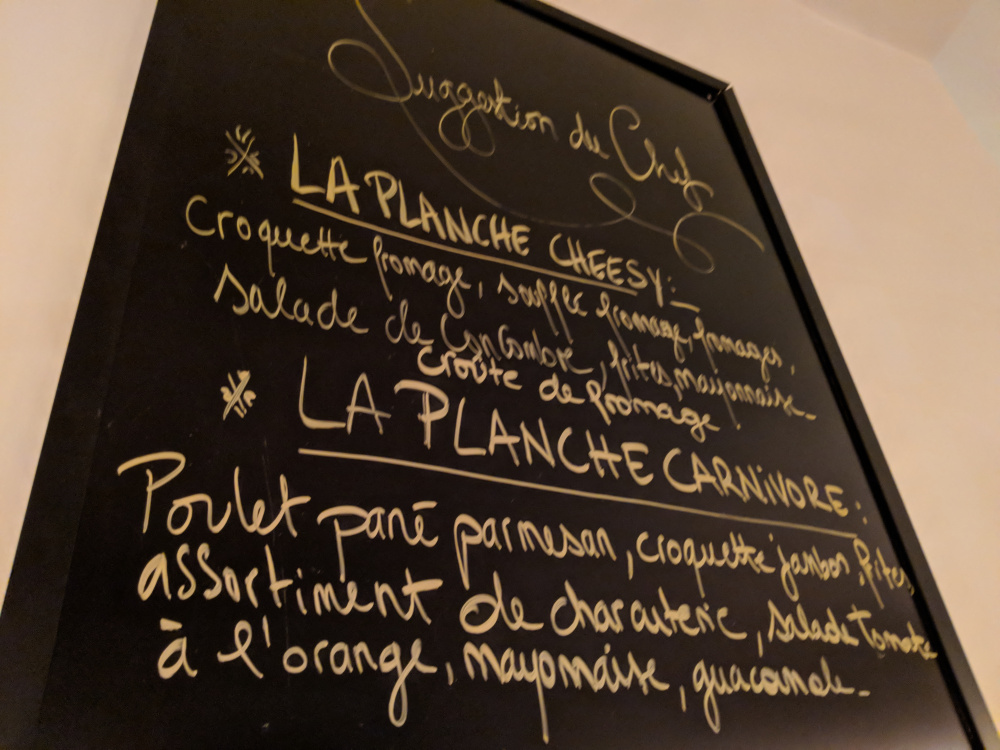 Suggestion du Chef
LA PLANCHE CHEESY:
Croquette fromage, soufflé fromage, fromages,
Salade de Concombre, frites, mayonnaise.
croûte de fromage
LA PLANCHE CARNiVORE:
Poulet pané parmesan, croquette jambon, frites,
assortiment de charcuterie, salade Tomate
à l'orange, mayonnaise, guacamole.